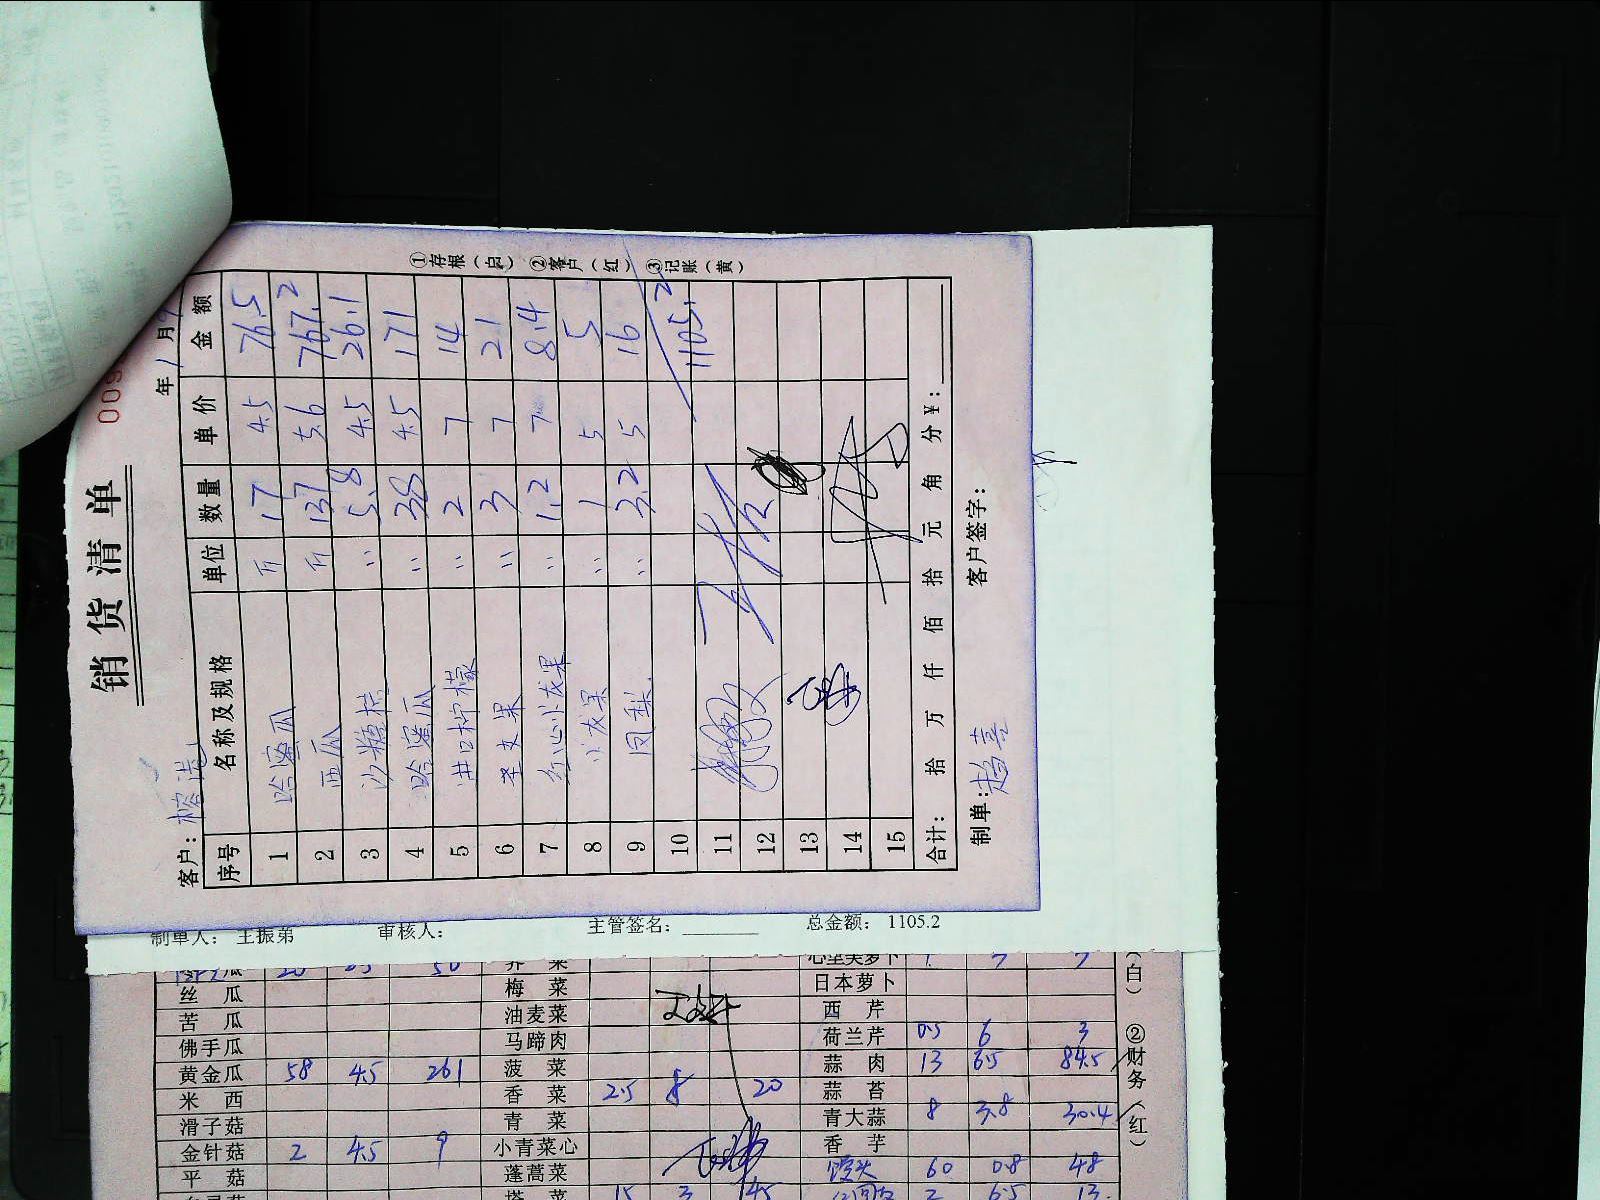 销货清单
009
年1月9
客户：榕港
序号 名称及规格 单位 数量 单价 金额
1 哈蜜瓜 斤 17 4.5 76.5
2 西瓜 斤 137 5.6 767.2
3 沙糖桔 〃 5.8 4.5 26.1
4 哈蜜瓜 〃 38 4.5 171
5 进口柠檬 〃 2 7 14
6 圣女果 〃 3 7 21
7 红心火龙果 1.2 7 8.4
8 火龙果 〃 1 5 5
9 凤梨 〃 3.2 5 16
10 1105.2
11
12
13
14
15
合计： 拾 万 仟 佰 拾 元 角 分 ￥：
制单：赵喜 客户签字：
①存根（白） ②客户（红） ③记账（黄）
制单人： 王振弟 审核人： 主管签名： 总金额： 1105.2
丝瓜 梅菜 日本萝卜
苦瓜 油麦菜 西芹
佛手瓜 马蹄肉 荷兰芹 0.5 6 3
黄金瓜 58 4.5 261 菠菜 蒜肉 13 6.5 84.5
米西 香菜 2.5 8 20 蒜苔
滑子菇 青菜 青大蒜 8 3.8 30.4
金针菇 2 4.5 9 小青菜心 香芋
平菇 蓬蒿菜 馒头 60 0.8 48
塔菜 15 3 45 2 6.5 13
（白） ②财务（红）